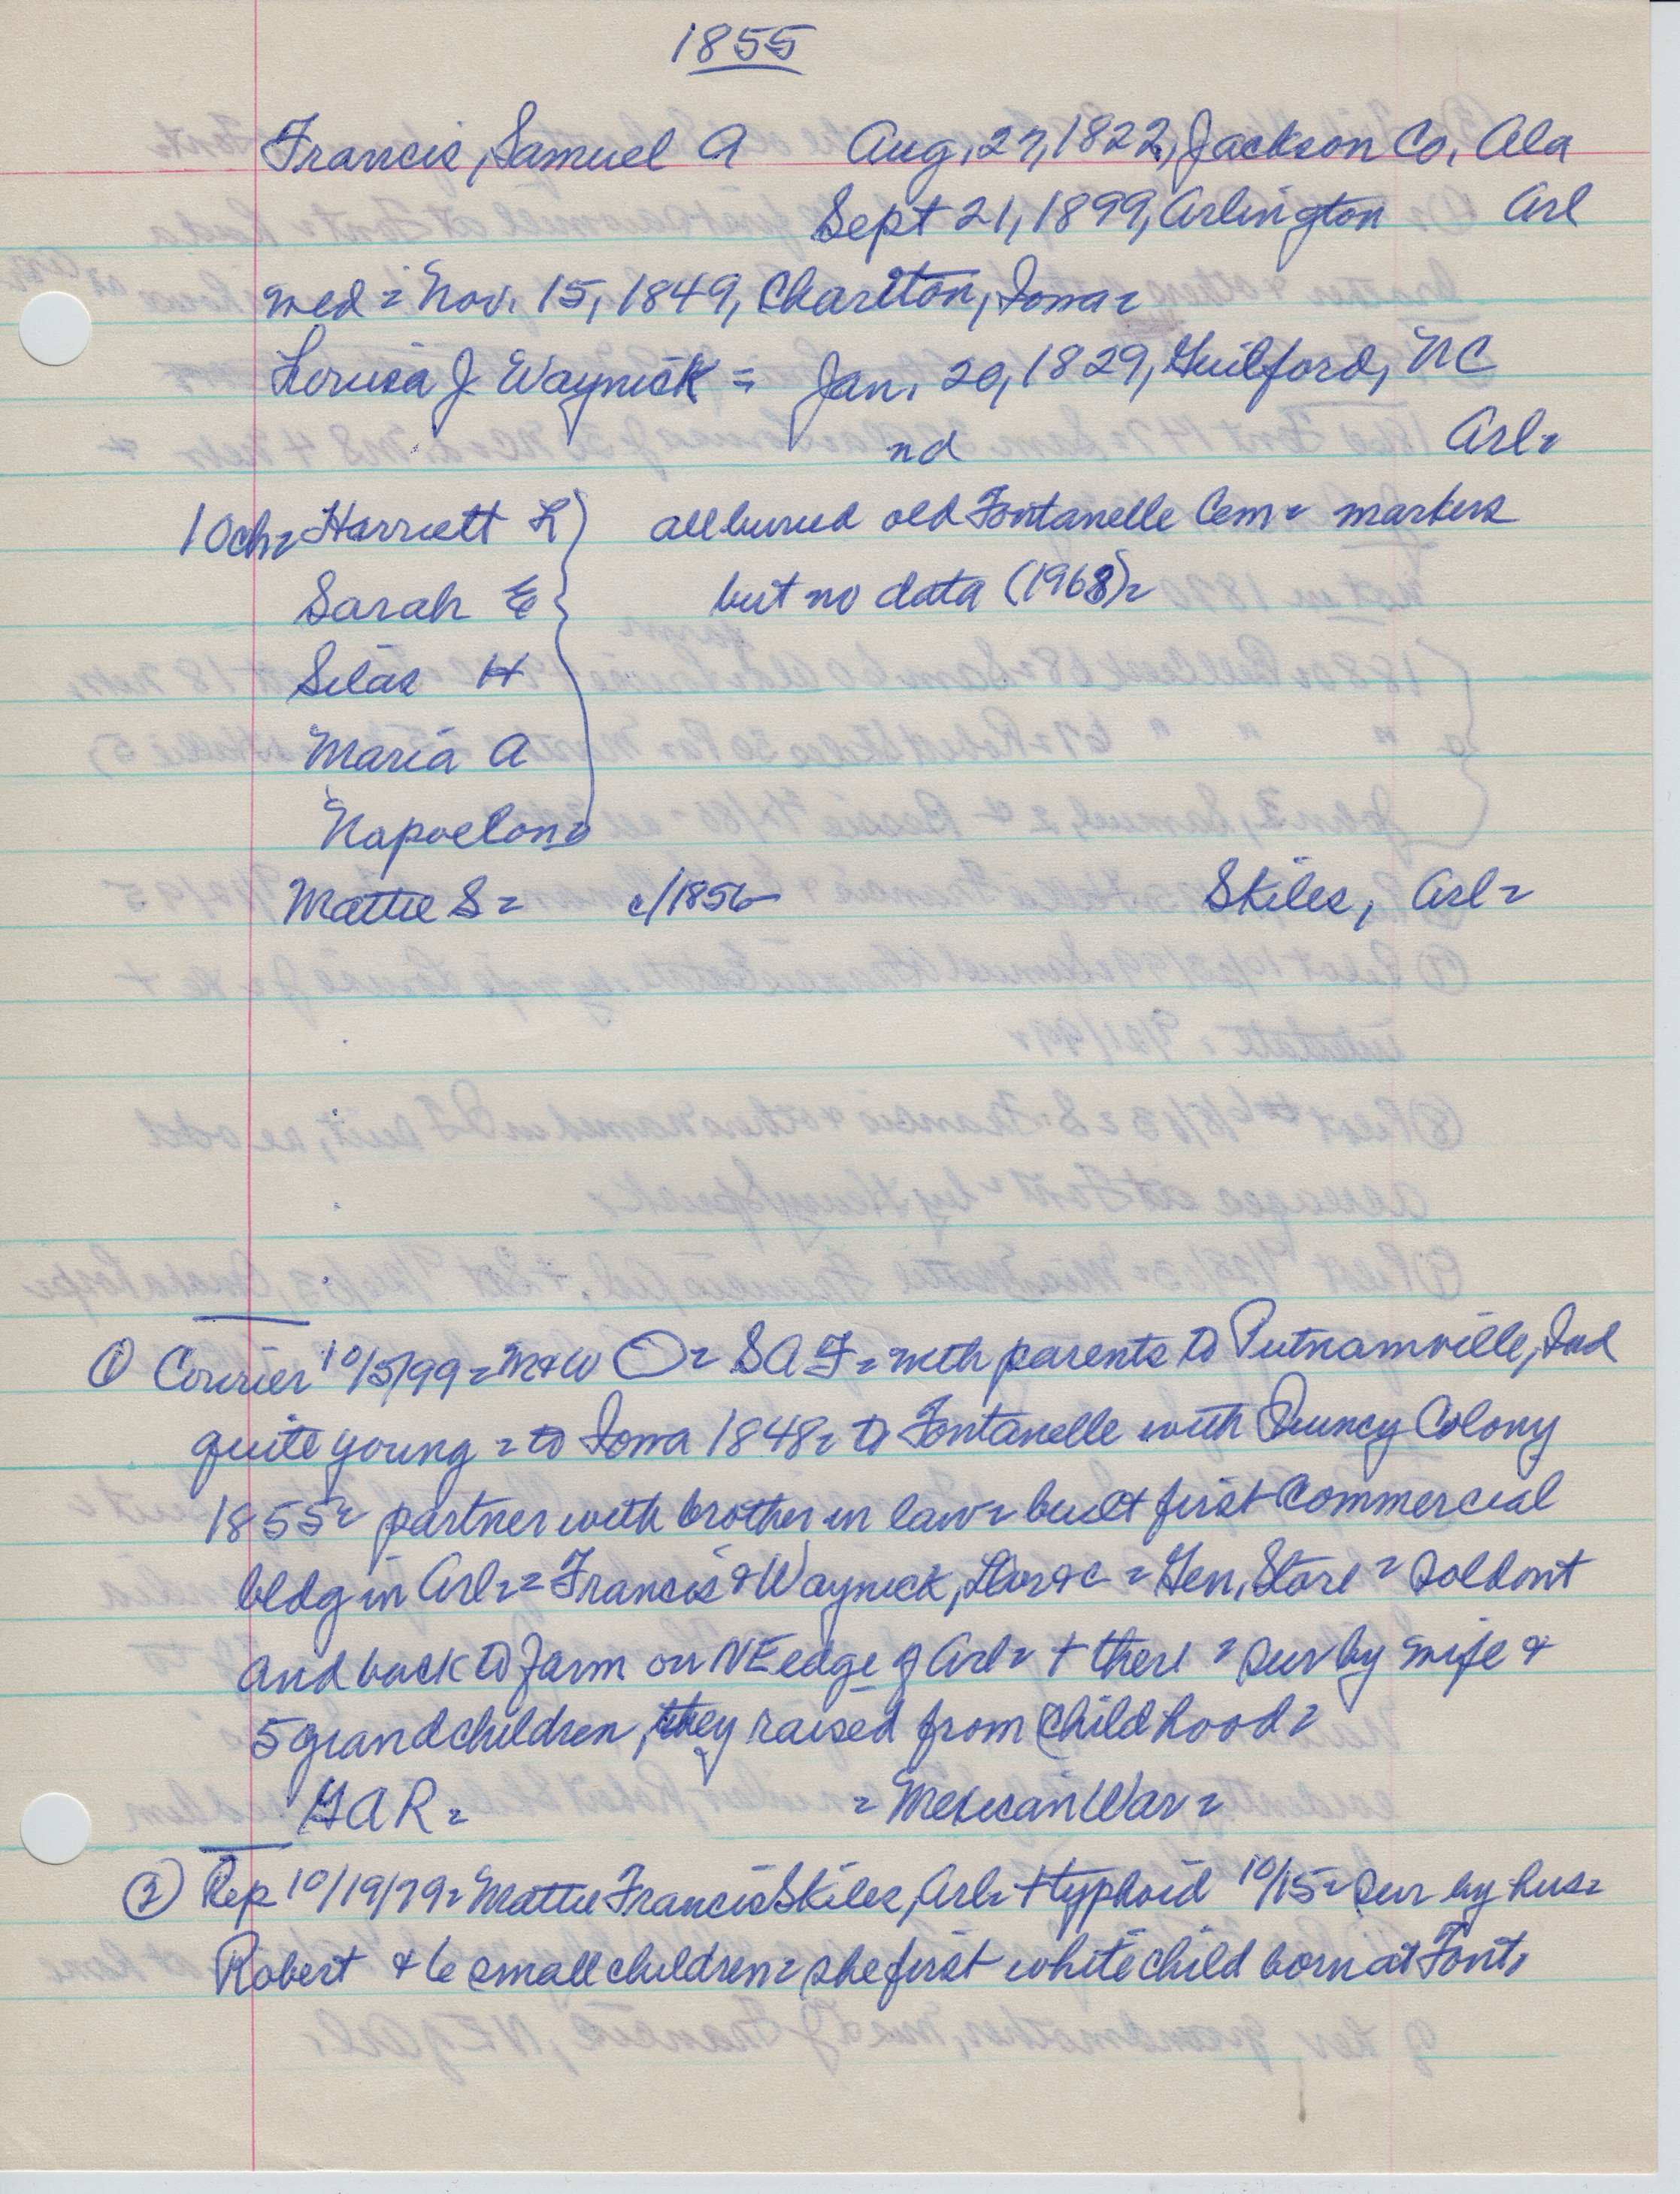 1855
Francis, Samuel A Aug, 27, 1822, Jackson Co, Ala
Sept 21, 1899, Arlington Arl
med = Nov. 15, 1849, Charlton, Iowa =
Louisa J Waynick = Jan. 20, 1829, Guilford, NC
nd Arl =
10 ch = Harriett L } all buried old Fontanelle Cem = markers
Sarah E but no data (1968) =
Silas H
Maria A
Napoelon =
Mattie S = c/1856 Skiles, Arl =
① Courier 10/5/99 = M+W = S A F = with parents to Putnamville, Ind
quite young = to Iowa 1848 = to Fontanelle with Quincy Colony
1855 = partner with brother in law = built first Commercial
bldg in Arl = = Francis & Waynick, = Gen, Store = Sold out
and back to farm on NE edge of Arl = + there = sur by wife &
5 grandchildren, they raised from childhood =
GAR = = Mexican War =
② Rep 10/19/79 = Mattie Francis Skiles, Arl = + typhoid 10/15 = sur by hus =
Robert & 6 small children = she first white child born at Font,